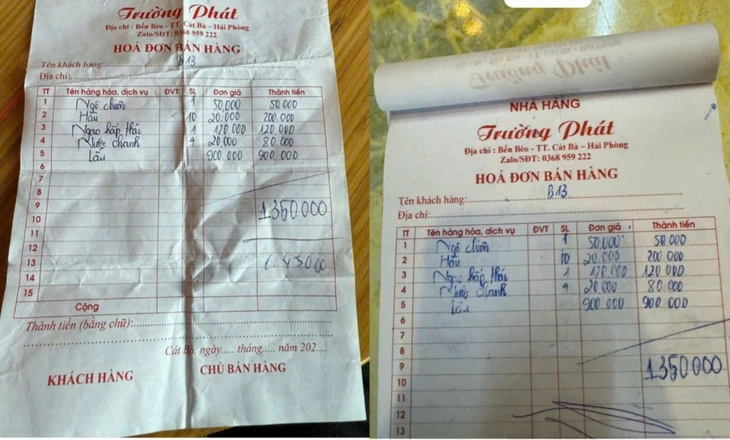 Trường Phát
Địa chỉ : Bến Bèo - TT. Cát Bà - Hải Phòng
Zalo/SĐT: 0368 959 222
HOÁ ĐƠN BÁN HÀNG
Tên khách hàng: B13
Địa chỉ:
TT Tên hàng hóa, dịch vụ ĐVT SL Đơn giá Thành tiền
1 Ngô chiên 1 50.000 50 000
2 Hàu 10 20.000 200 000
3 Ngao hấp thái 1 120.000 120 000
4 Nước chanh 4 20000 80 000
5 Lẩu 900 000 900.000
6
7
8
9 1350000
10
11
12
13
14
15
Cộng
Thành tiền (bằng chữ):
Cát Bà, ngày..... tháng..... năm 202....
KHÁCH HÀNG CHỦ BÁN HÀNG
Trường Phát
NHÀ HÀNG
Trường Phát
Địa chỉ : Bến Bèo - TT. Cát Bà - Hải Phòng
Zalo/SĐT: 0368 959 222
HOÁ ĐƠN BÁN HÀNG
Tên khách hàng: B13
Địa chỉ:
TT Tên hàng hóa, dịch vụ ĐVT SL Đơn giá Thành tiền
1 Ngô chiên 1 50.000 50 000
2 Hàu 10 20.000 200 000
3 Ngao hấp thái 1 120.000 120 000
4 Nước chanh 4 20000 80 000
5 Lẩu 900.000 900.000
6
7
8
9 1350000
10
11
12
13